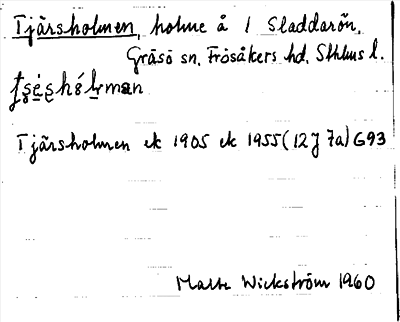 Tjärsholmen, holme å / Sladdarön,
Gräsö sn, Frösåkers hd, Sthlms l.
Tjärsholmen ek 1905 ek 1955 (12J 7a) G93
Malte Wickström 1960